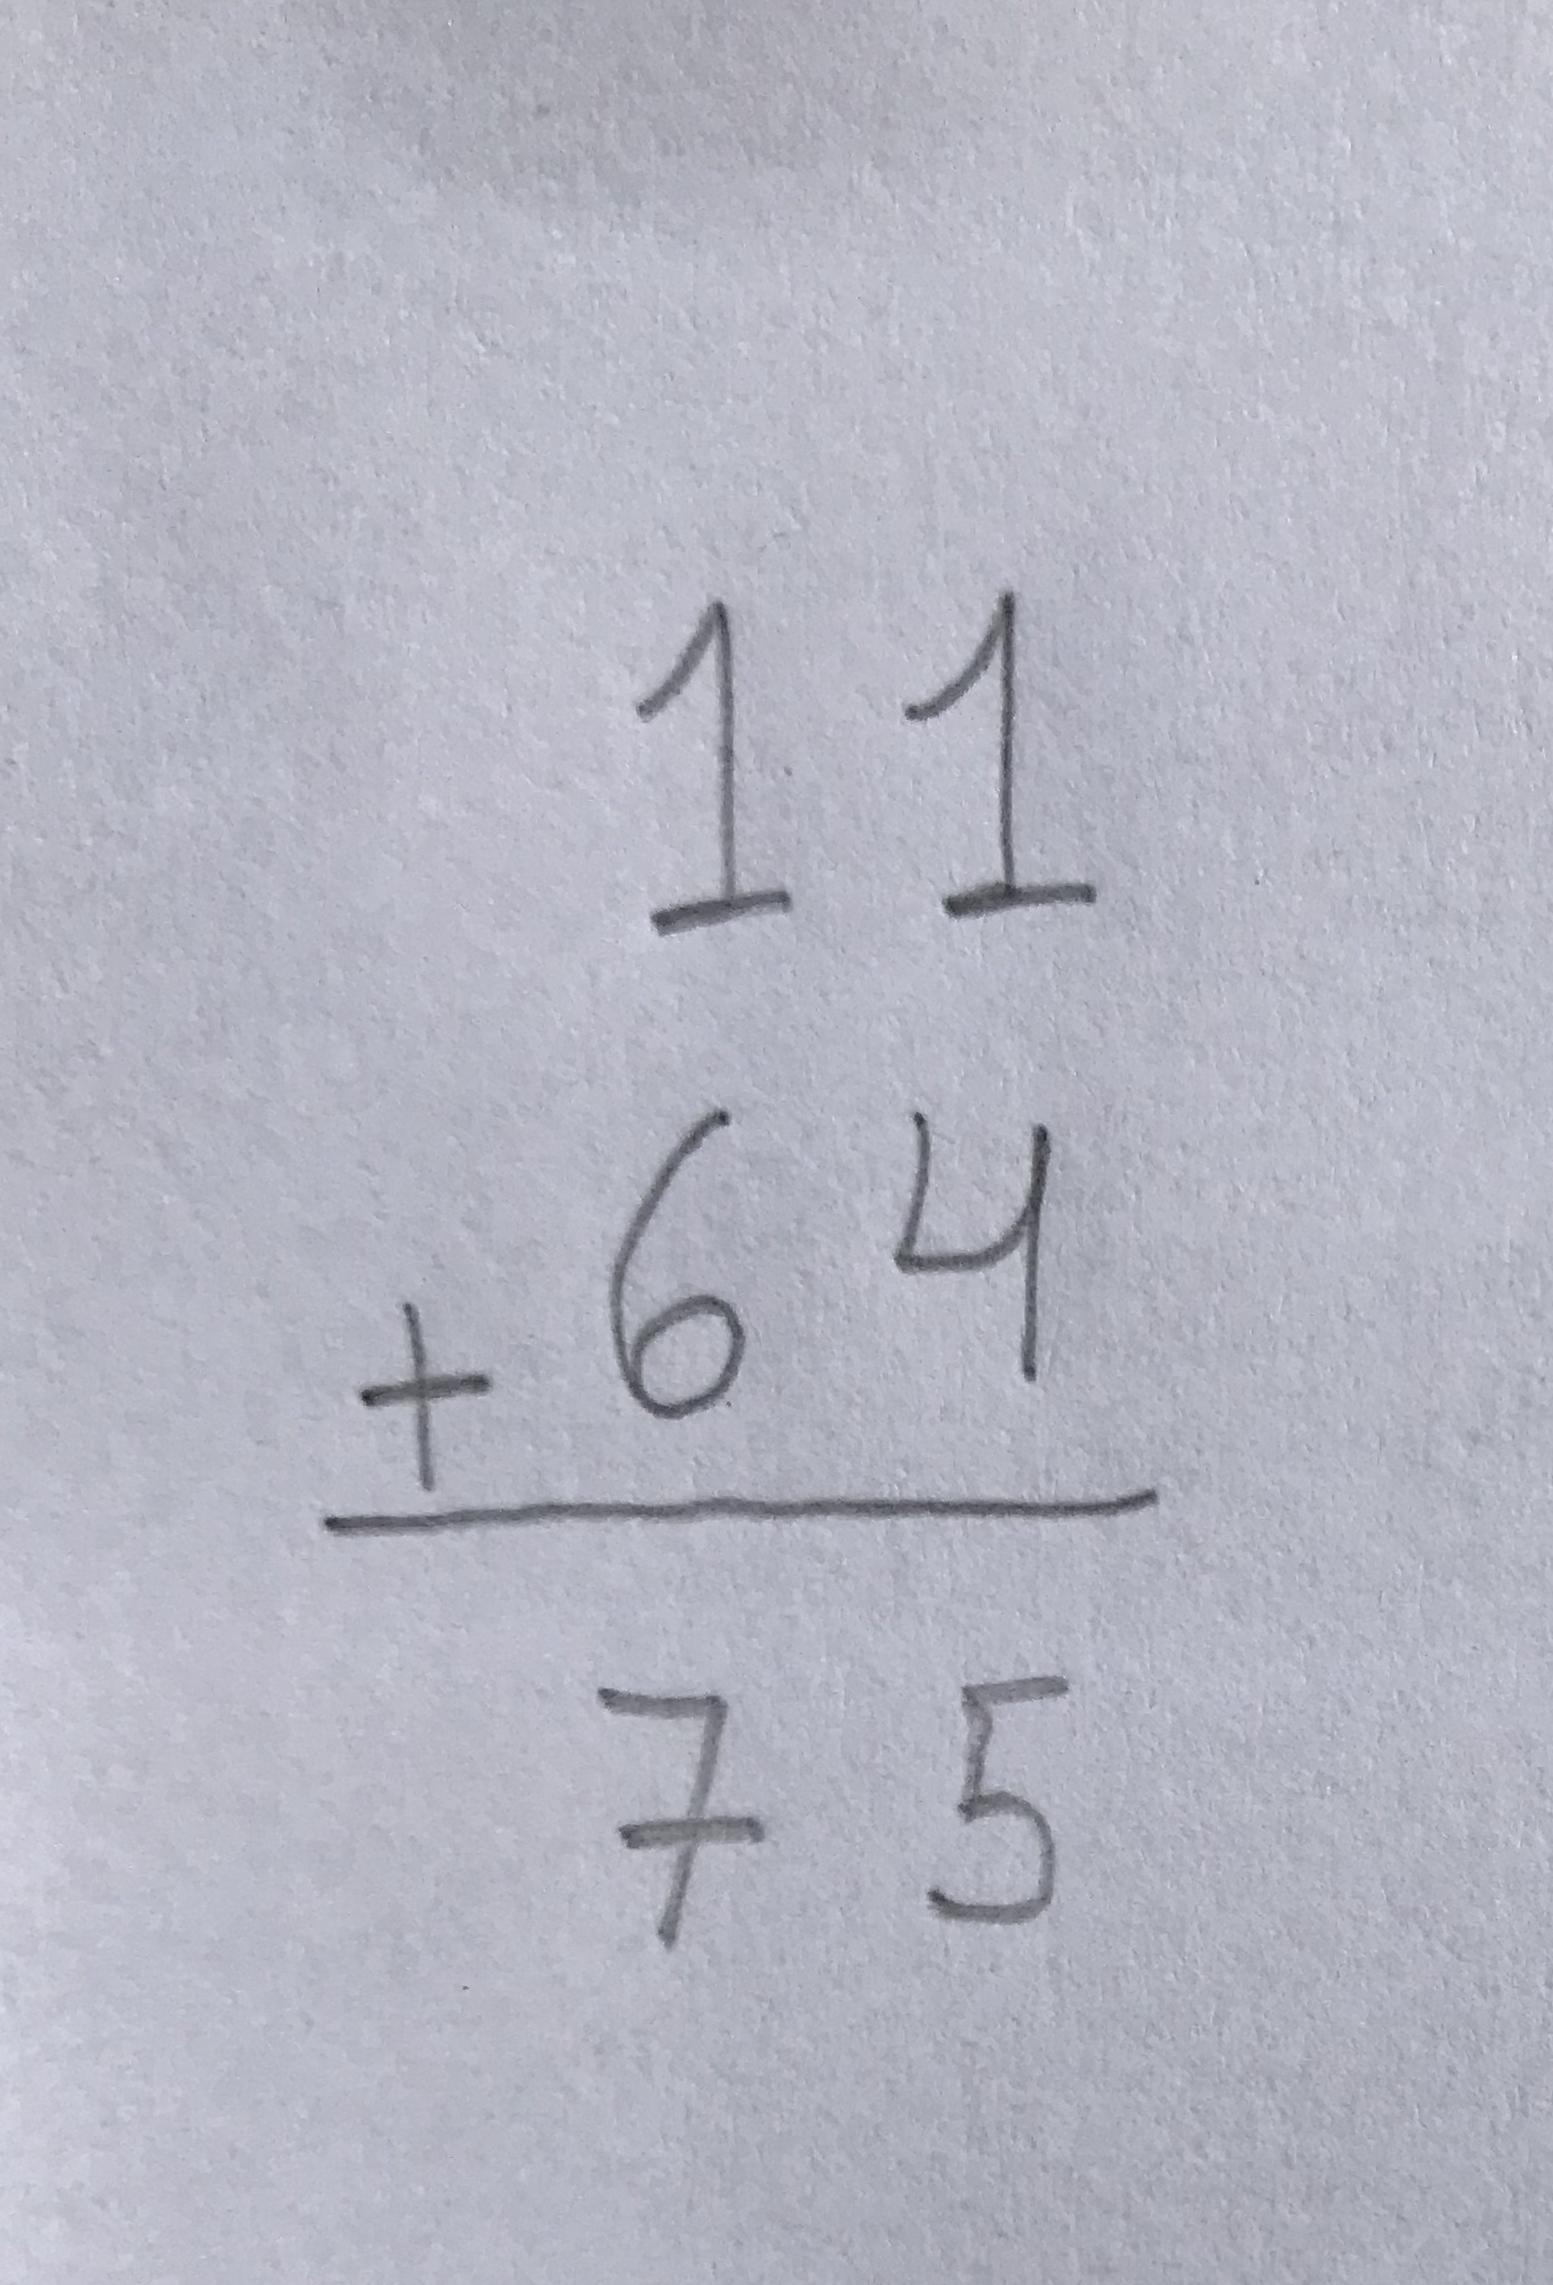 11
+ 64
75